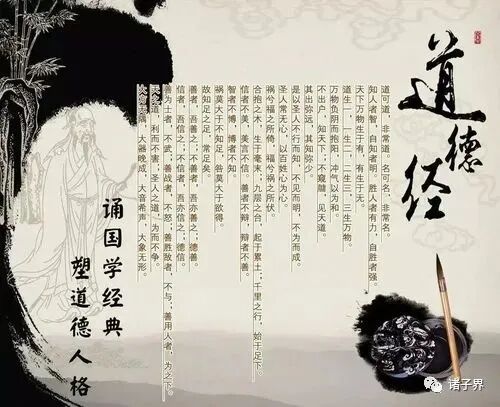 道德经
道可道，非常道。名可名，非常名。
知人者智，自知者明。胜人者有力，自胜者强。
天下万物生于有，有生于无。
道生一，一生二，二生三，三生万物。
万物负阴而抱阳，冲气以为和。
不出户，知天下；不窥牖，见天道。
其出弥远，其知弥少。
是以圣人不行而知，不见而明，不为而成。
圣人常无心，以百姓心为心。
祸兮福之所倚，福兮祸之所伏。
合抱之木，生于毫末；九层之台，起于累土；千里之行，始于足下。
信者不美，美言不信。善者不辩，辩者不善。
智者不博，博者不知。
祸莫大于不知足，咎莫大于欲得。
故知足之足，常足矣。
善者，吾善之；不善者，吾亦善之；德善。
信者，吾信之；不信者，吾亦信之；德信。
善为士者，不武；善战者，不怒；善胜敌者，不与；善用人者，为之下。
天之道，利而不害；圣人之道，为而不争。
大方无隅，大器晚成，大音希声，大象无形。
诵国学经典
塑道德人格
诸子界